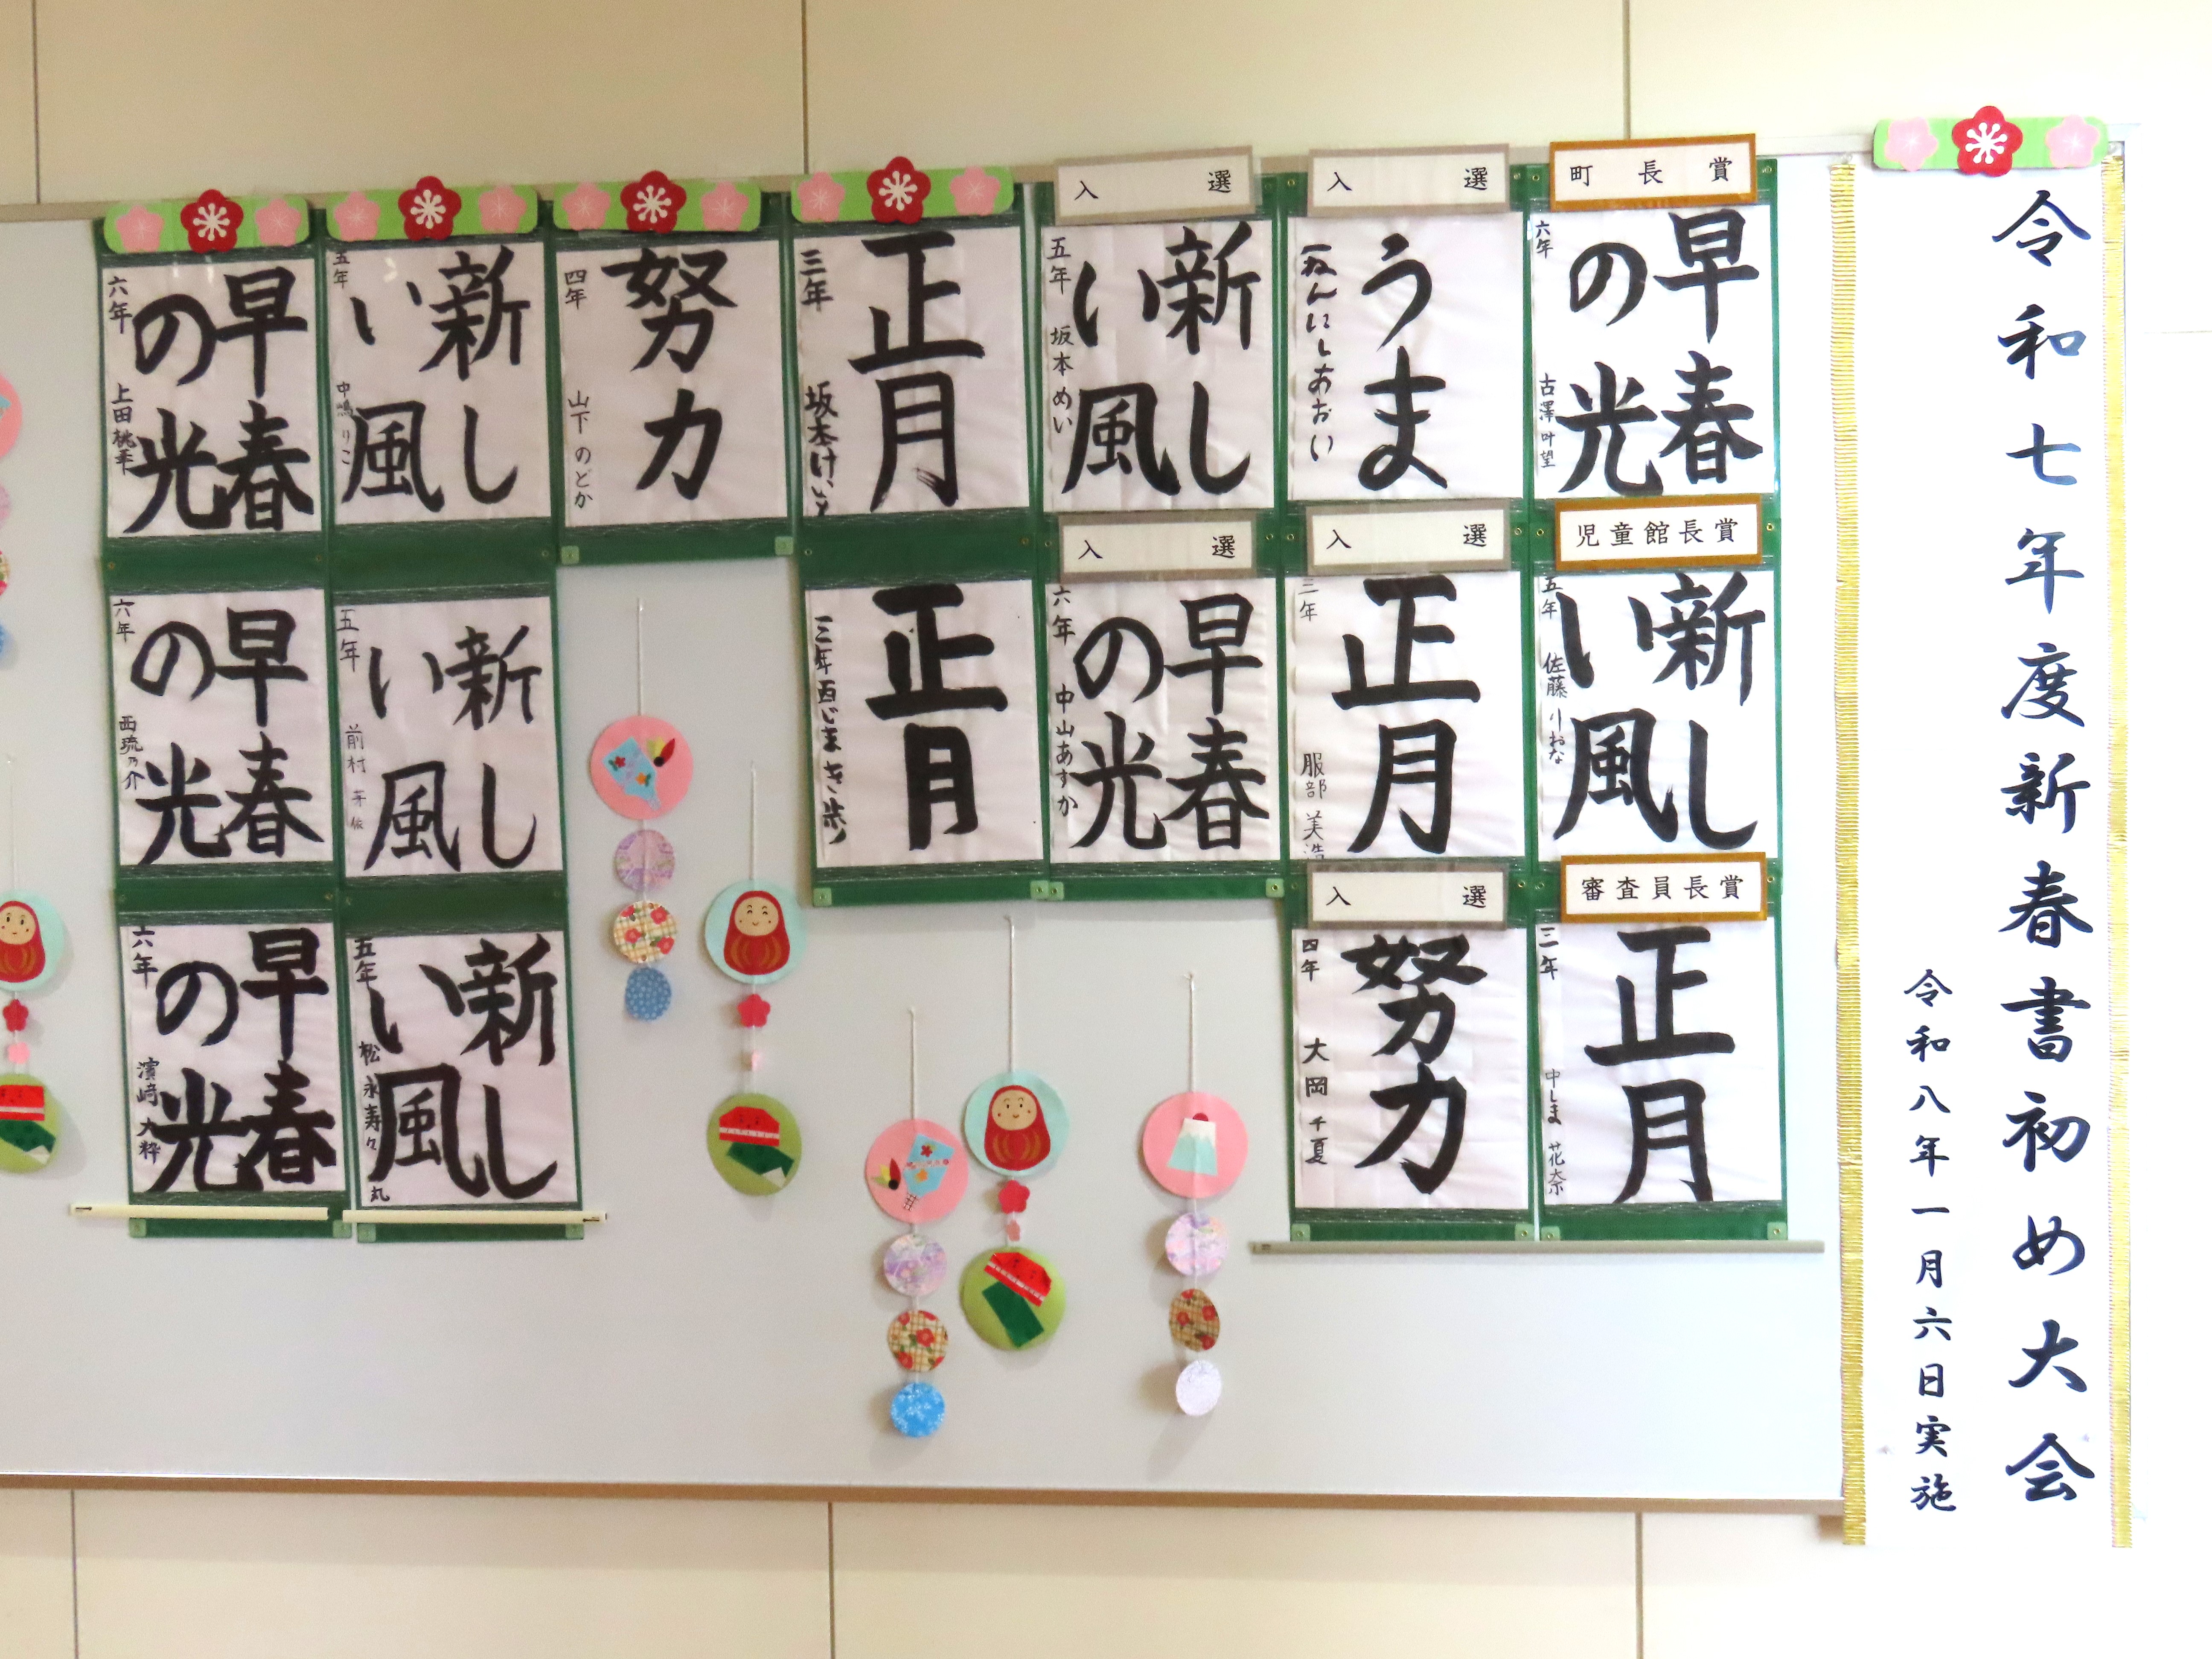 令和七年度新春書初め大会
令和八年一月六日実施
町長賞
早春
の光
六年 古澤叶望
児童館長賞
新し
い風
五年 佐藤りおな
審査員長賞
正月
三年 中しま 花奈
入選
うま
一ねん にしあおい
入選
正月
三年 服部 美浩
入選
努力
四年 大岡千夏
入選
新し
い風
五年 坂本めい
入選
早春
の光
六年 中山あすか
正月
三年 坂本けいと
正月
三年 西じま き歩
努力
四年 山下のどか
新し
い風
五年 中嶋りこ
新し
い風
五年 前村
新し
い風
五年 松永寿々丸
早春
の光
六年 上田桃華
早春
の光
六年 西琉乃介
早春
の光
六年 濵﨑大粋